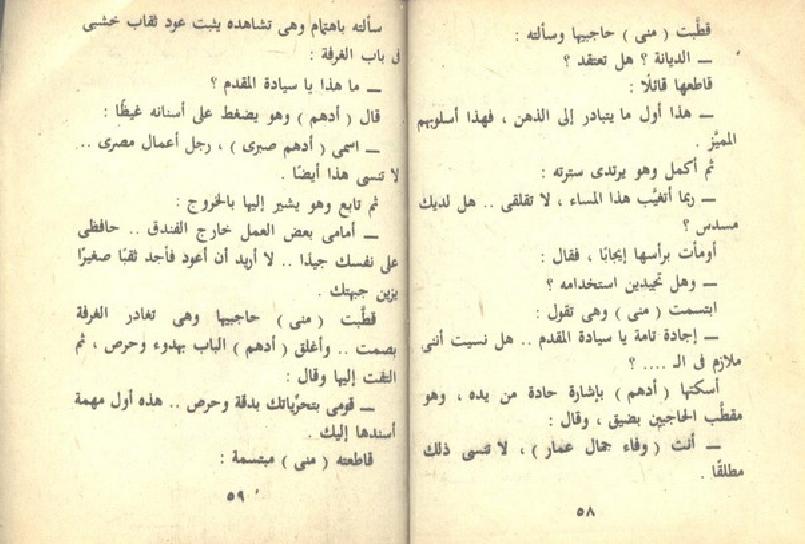 قطَّبت ( منى ) حاجبيها وسألته :
ــ الديانة ؟ هل تعتقد ؟
قاطعها قائلًا :
ــ هذا أول ما يتبادر إلى الذهن ، فهذا أسلوبهم
المميَّز .
ثم أكمل وهو يرتدى سترته :
ــ ربما أتغيَّب هذا المساء ، لا تقلقى .. هل لديك
مسدس ؟
أومأت برأسها إيجابًا ، فقال :
ــ وهل تجيدين استخدامه ؟
ابتسمت ( منى ) وهى تقول :
ــ إجادة تامة يا سيادة المقدم .. هل نسيت أننى
ملازم فى الـ .... ؟
أسكتها ( أدهم ) بإشارة حادة من يده ، وهو
مقطِّب الحاجبين بضيق ، وقال :
ــ أنت ( وفاء جمال عمار ) ، لا تنسى ذلك
مطلقًا .
٥٨
سألته باهتمام وهى تشاهده يثبت عود ثقاب خشبى
فى باب الغرفة :
ــ ما هذا يا سيادة المقدم ؟
قال ( أدهم ) وهو يضغط على أسنانه غيظًا :
ــ اسمى ( أدهم صبرى ) ، رجل أعمال مصرى ..
لا تنسى هذا أيضًا .
ثم تابع وهو يشير إليها بالخروج :
ــ أمامى بعض العمل خارج الفندق .. حافظى
على نفسك جيدًا .. لا أريد أن أعود فأجد ثقبًا صغيرًا
يزين جبهتك .
قطَّبت ( منى ) حاجبيها وهى تغادر الغرفة
بصمت .. وأغلق ( أدهم ) الباب بهدوء وحرص ، ثم
التفت إليها وقال :
ــ قومى بتحرِّياتك بدقة وحرص .. هذه أول مهمة
أسندها إليك .
قاطعته ( منى ) مبتسمة :
٥٩